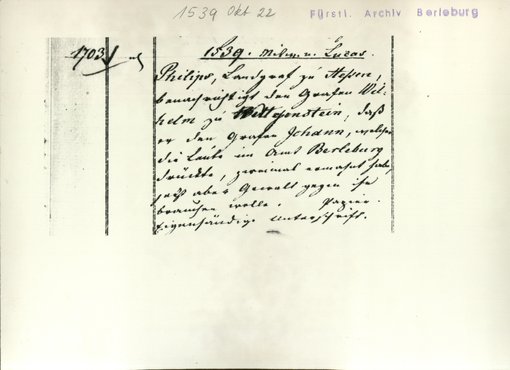 1539 Okt 22
Fürstl. Archiv Berleburg
1703
1539. Mittw. n. Lucas.
Philipp, Landgraf zu Hessen,
benachrichtigt den Grafen Wil-
helm zu Wittgenstein, daß
er den Grafen Johann, welcher
die Leute im Amt Berleburg
drückte, zweimal ermahnt habe,
jetzt aber Gewalt gegen ihn
brauchen wolle. Papier.
Eigenhändige Unterschrift.